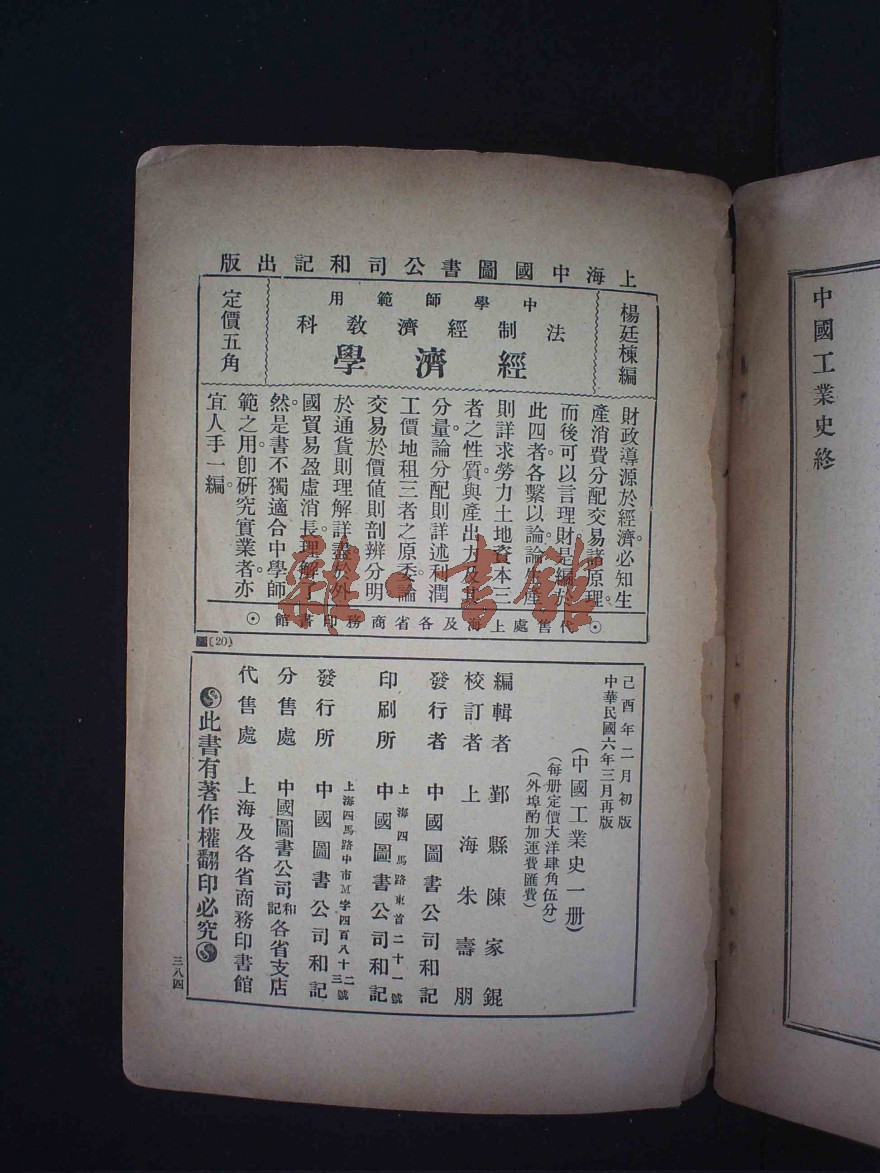 中國工業史終
上海中國圖書公司和記出版
楊廷棟編
中學師範用
法制經濟教科
經濟學
定價五角
財政導源於經濟。必知生
產消費分配交易諸原理。
而後可以言理財。是編於
此四者各繫以論。論生產
則詳求勞力土地資本三
者之性質與產出方及其
分量。論分配則詳述利潤
工價地租三者之原委。論
交易於價值則剖辨分明
於通貨則理解詳盡於外
國貿易盈虛消長理解了
然。是書不獨適合中學師
範之用。卽研究實業者。亦
宜人手一編。
⊙代售處上海及各省商務印書館⊙
(20)
己酉年二月初版
中華民國六年三月再版
(中國工業史一册)
(每册定價大洋肆角伍分)
(外埠酌加運費匯費)
編輯者 鄞縣陳家錕
校訂者 上海朱壽朋
發行者 中國圖書公司和記
印刷所 上海四馬路東首二十一號 中國圖書公司和記
發行所 上海四馬路中市M字四百八十二三號 中國圖書公司和記
分售處 中國圖書公司和記各省支店
代售處 上海及各省商務印書館
此書有著作權翻印必究
三八四
雜·書館